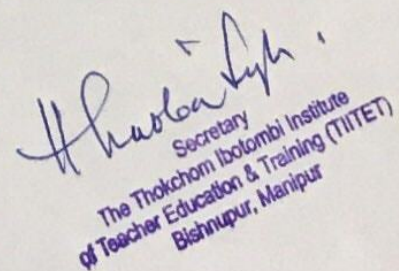 Secretary
The Thokchom Ibotombi Institute
of Teacher Education & Training (TIITET)
Bishnupur, Manipur